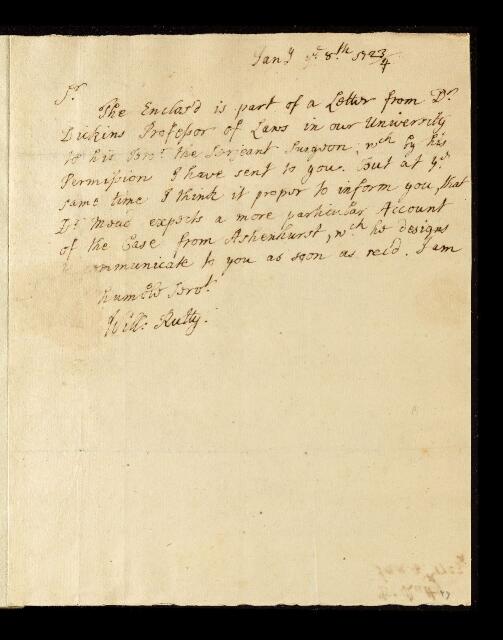 Jany ye 8th 1723/4
Sr
The Enclos'd is part of a Letter from Dr
Dickins Professor of Laws in our University
to his Bror the Serjeant Surgeon, wch by his
Permission I have sent to you. But at ye
same time I think it proper to inform you, that
Dr Mead expects a more particular Account
of the Case from Ashenhurst, wch he designs
communicate to you as soon as recd. I am
humble Servt
Will: Rutty.